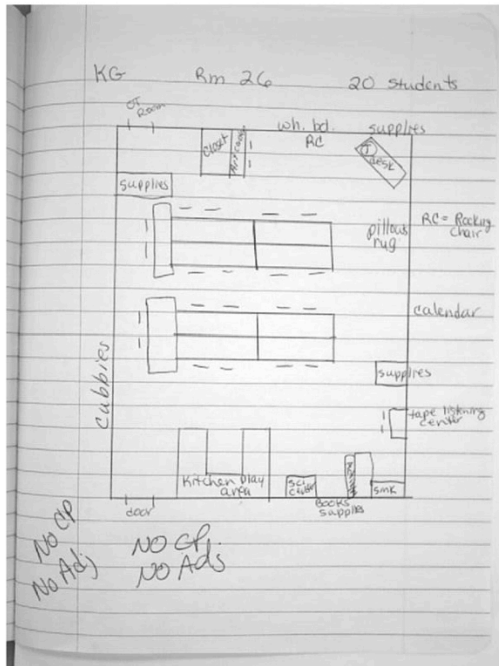 KG Rm 26 20 students
OT Room
Closet
wh. bd.
RC
supplies
T
desk
supplies
pillows
rug
RC = Rocking
chair
calendar
supplies
cubbies
tape listning
center
Kitchen play
area
sci
center
Books
supplies
smk
door
NO CP
NO Adj
NO CP.
NO Adj